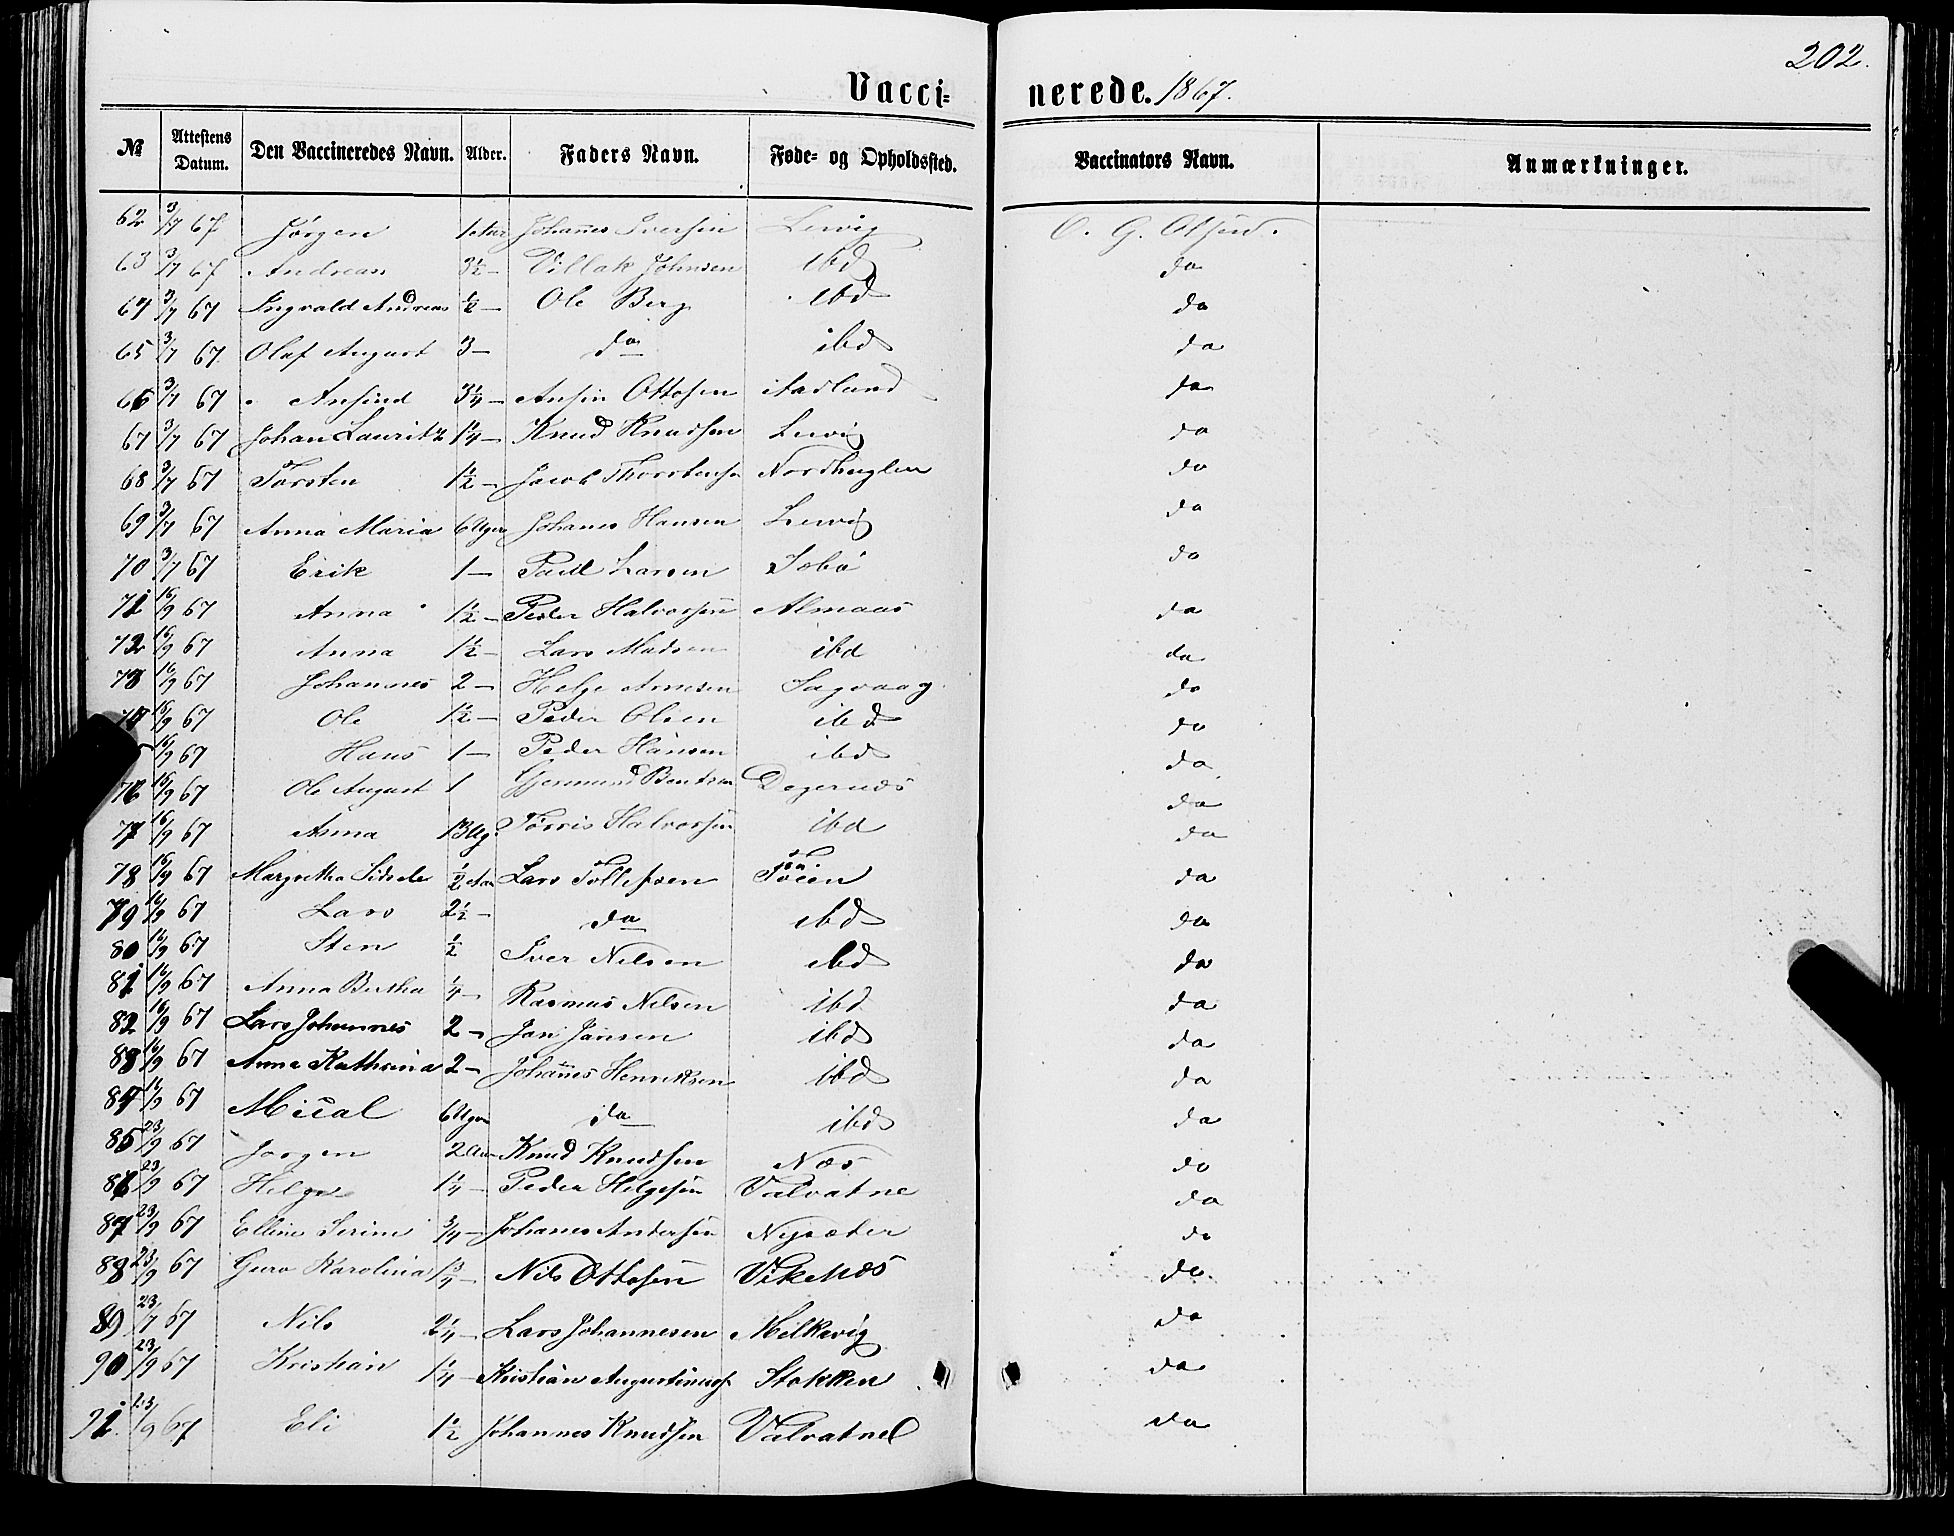 202.
Vaccinerede. 1867.
№ Attestens Datum. Den Vaccineredes Navn. Alder. Faders Navn. Føde- og Opholdssted. Vaccinators Navn. Anmærkninger.
62 3/7 67 Jörgen 1 Aar Johannes Iversen Lervig O. G. Olsen.
63 3/7 67 Andreas 3½ — Johnsen ibd do
64 3/7 67 Ingvald Andreas ½ — Ole Berg ibd do
65 3/7 67 Olaf August 3 — do ibd do
66 3/7 67 Ansind 3¼ — Ansin Ottosen do
67 3/7 67 Johan Lauritz 1¼ — Knud Knudsen Lervig do
68 3/7 67 Torsten 1½ — Jacob Thorstens Nordhuglen do
69 3/7 67 Anna Maria 6 Uger Johanes Hansen Lervig do
70 3/7 67 Erik 1 — Poul Larsen do
71 16/9 67 Anna 1½ — Peder Halvorsen Almaas do
72 16/9 67 Anna 1½ — Lars Madsen ibd do
73 16/9 67 Johannes 2 — Helge Arnesen Sagvaag do
74 16/9 67 Ole 1½ — Peder Olsen ibd do
16/9 67 Hans 1 — Peder Hansen ibd do
76 16/9 67 Ole August 1 Gjermund Bentsen Degernæs do
77 16/9 67 Anna 13 Ug. Törris Halvorsen ibd do
78 16/9 67 Margretha Sidsele ½ Aar Lars Tollefsen do
79 16/9 67 Lars 2½ — do ibd do
80 16/9 67 Sten ½ Iver Nilsen ibd do
81 16/9 67 Anna Bertha ¼ — Rasmus Nilsen ibd do
82 16/9 67 Lars Johannes 2 — Jan Jansen ibd do
83 16/9 67 Anna Kathrina 2 — Johannes Henriksen ibd do
84 16/9 67 Mical 6 Uger do ibd do
85 23/9 67 Jørgen 2 Aar Knud Knudsen Næs do
86 23/9 67 Helge 1¼ — Peder Helgesen Valvatne do
87 23/9 67 Elline Serine ¾ — Johanes Andersen Nysæter do
88 23/9 67 Guro Karolina 1¾ — Nils Ottosen Vikenæs do
89 23/7 67 Nils 2¼ — Lars Johannesen Melkevig do
90 23/9 67 Kristian 1¼ — Kristian Augustinus Stokken do
91. 23/9 67 Eli 1½ Johannes Knudsen Valvatne do